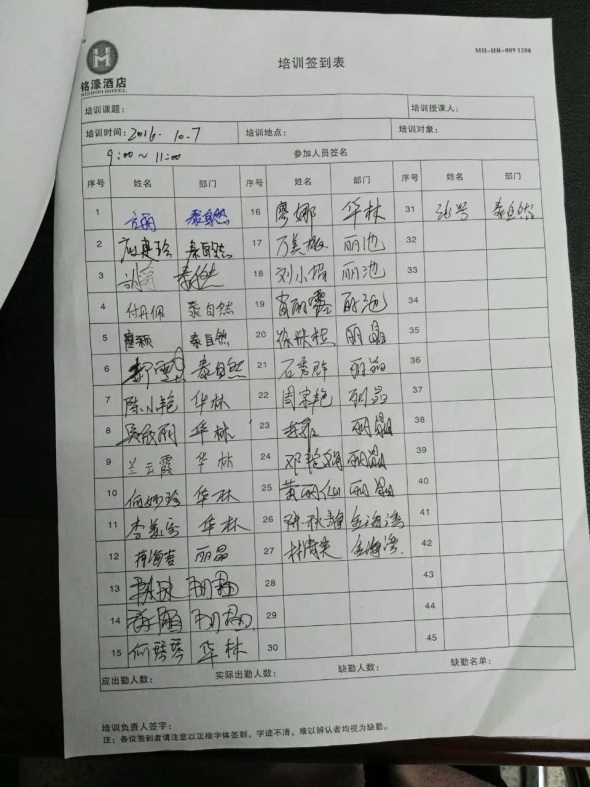 MH-HR-009 1208
铭濠酒店
MINHOO HOTEL
培训签到表
培训课题： 培训授课人：
培训时间：2016. 10.7 培训地点： 培训对象：
9:00 ~ 11:00 参加人员签名
序号 姓名 部门 序号 姓名 部门 序号 姓名 部门
1 方丽 泰自然 16 廖娜 华林 31 泰自然
2 应建玲 泰自然 17 丽池 32
3 泰自然 18 刘小娟 丽池 33
4 付丹佩 泰自然 19 肖丽霞 丽池 34
5 廖颖 泰自然 20 丽晶 35
6 泰自然 21 石秀群 丽晶 36
7 陈小艳 华林 22 周宗艳 丽晶 37
8 吴成丽 华林 23 丽晶 38
9 兰云霞 华林 24 丽晶 39
10 何妙玲 华林 25 黄丽仙 丽晶 40
11 华林 26 金海湾 41
12 丽晶 27 金海湾 42
13 28 43
14 29 44
15 何琴琴 华林 30 45
应出勤人数： 实际出勤人数： 缺勤人数： 缺勤名单：
培训负责人签字：
注：各位签到者请注意以正楷字体签到，字迹不清，难以辨认者均视为缺勤。